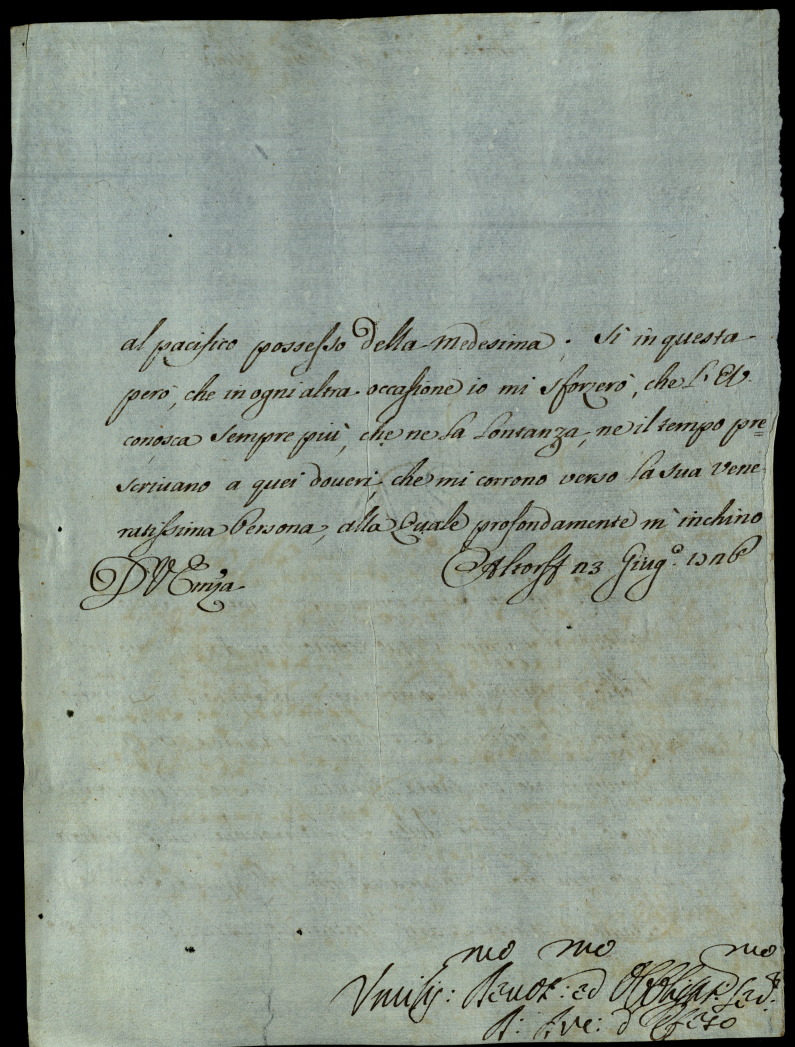 al pacifico possesso della medesima. Si in questa
però, che in ogni altra occasione io mi sforzerò, che l'E.V.
conosca sempre più, che ne la lontanza, ne il tempo pre=
scrivano a quei doveri, che mi corrono verso la sua vene
ratissima Persona, alla quale profondamente m'inchino
D V Emza Altorff 23 Giug.º 1726
mo mo mo
Umilis: devot: ed Obbligat:
d'Efeso